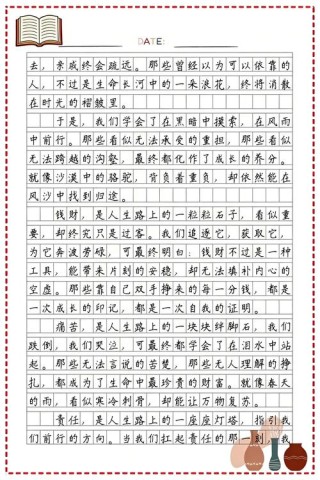 DATE:
去，亲戚终会疏远。那些曾经以为可以依靠的
人，不过是生命长河中的一朵浪花，终将消散
在时光的褶皱里。
于是，我们学会了在黑暗中摸索，在风雨
中前行。那些看似无法承受的重担，那些看似
无法跨越的沟壑，最终都化作了成长的养分。
就像沙漠中的骆驼，背负着重负，却依然能在
风沙中找到归途。
钱财，是人生路上的一粒粒石子，看似重
要，却终究只是过客。我们追逐它，获取它，
为它奔波劳碌，可最终明白：钱财不过是一种
工具，能带来片刻的安稳，却无法填补内心的
空虚。那些靠自己双手挣来的每一分钱，都是
一次成长的印记，都是一次自我的证明。
痛苦，是人生路上的一块块绊脚石，我们
跌倒，我们哭泣，可最终都学会了在泪水中站
起。那些无法言说的苦楚，那些无人理解的挣
扎，都成为了生命中最珍贵的财富。就像春天
的雨，看似寒冷刺骨，却能让万物复苏。
责任，是人生路上的一座座灯塔，指引我
们前行的方向。当我们扛起责任的那一刻，我